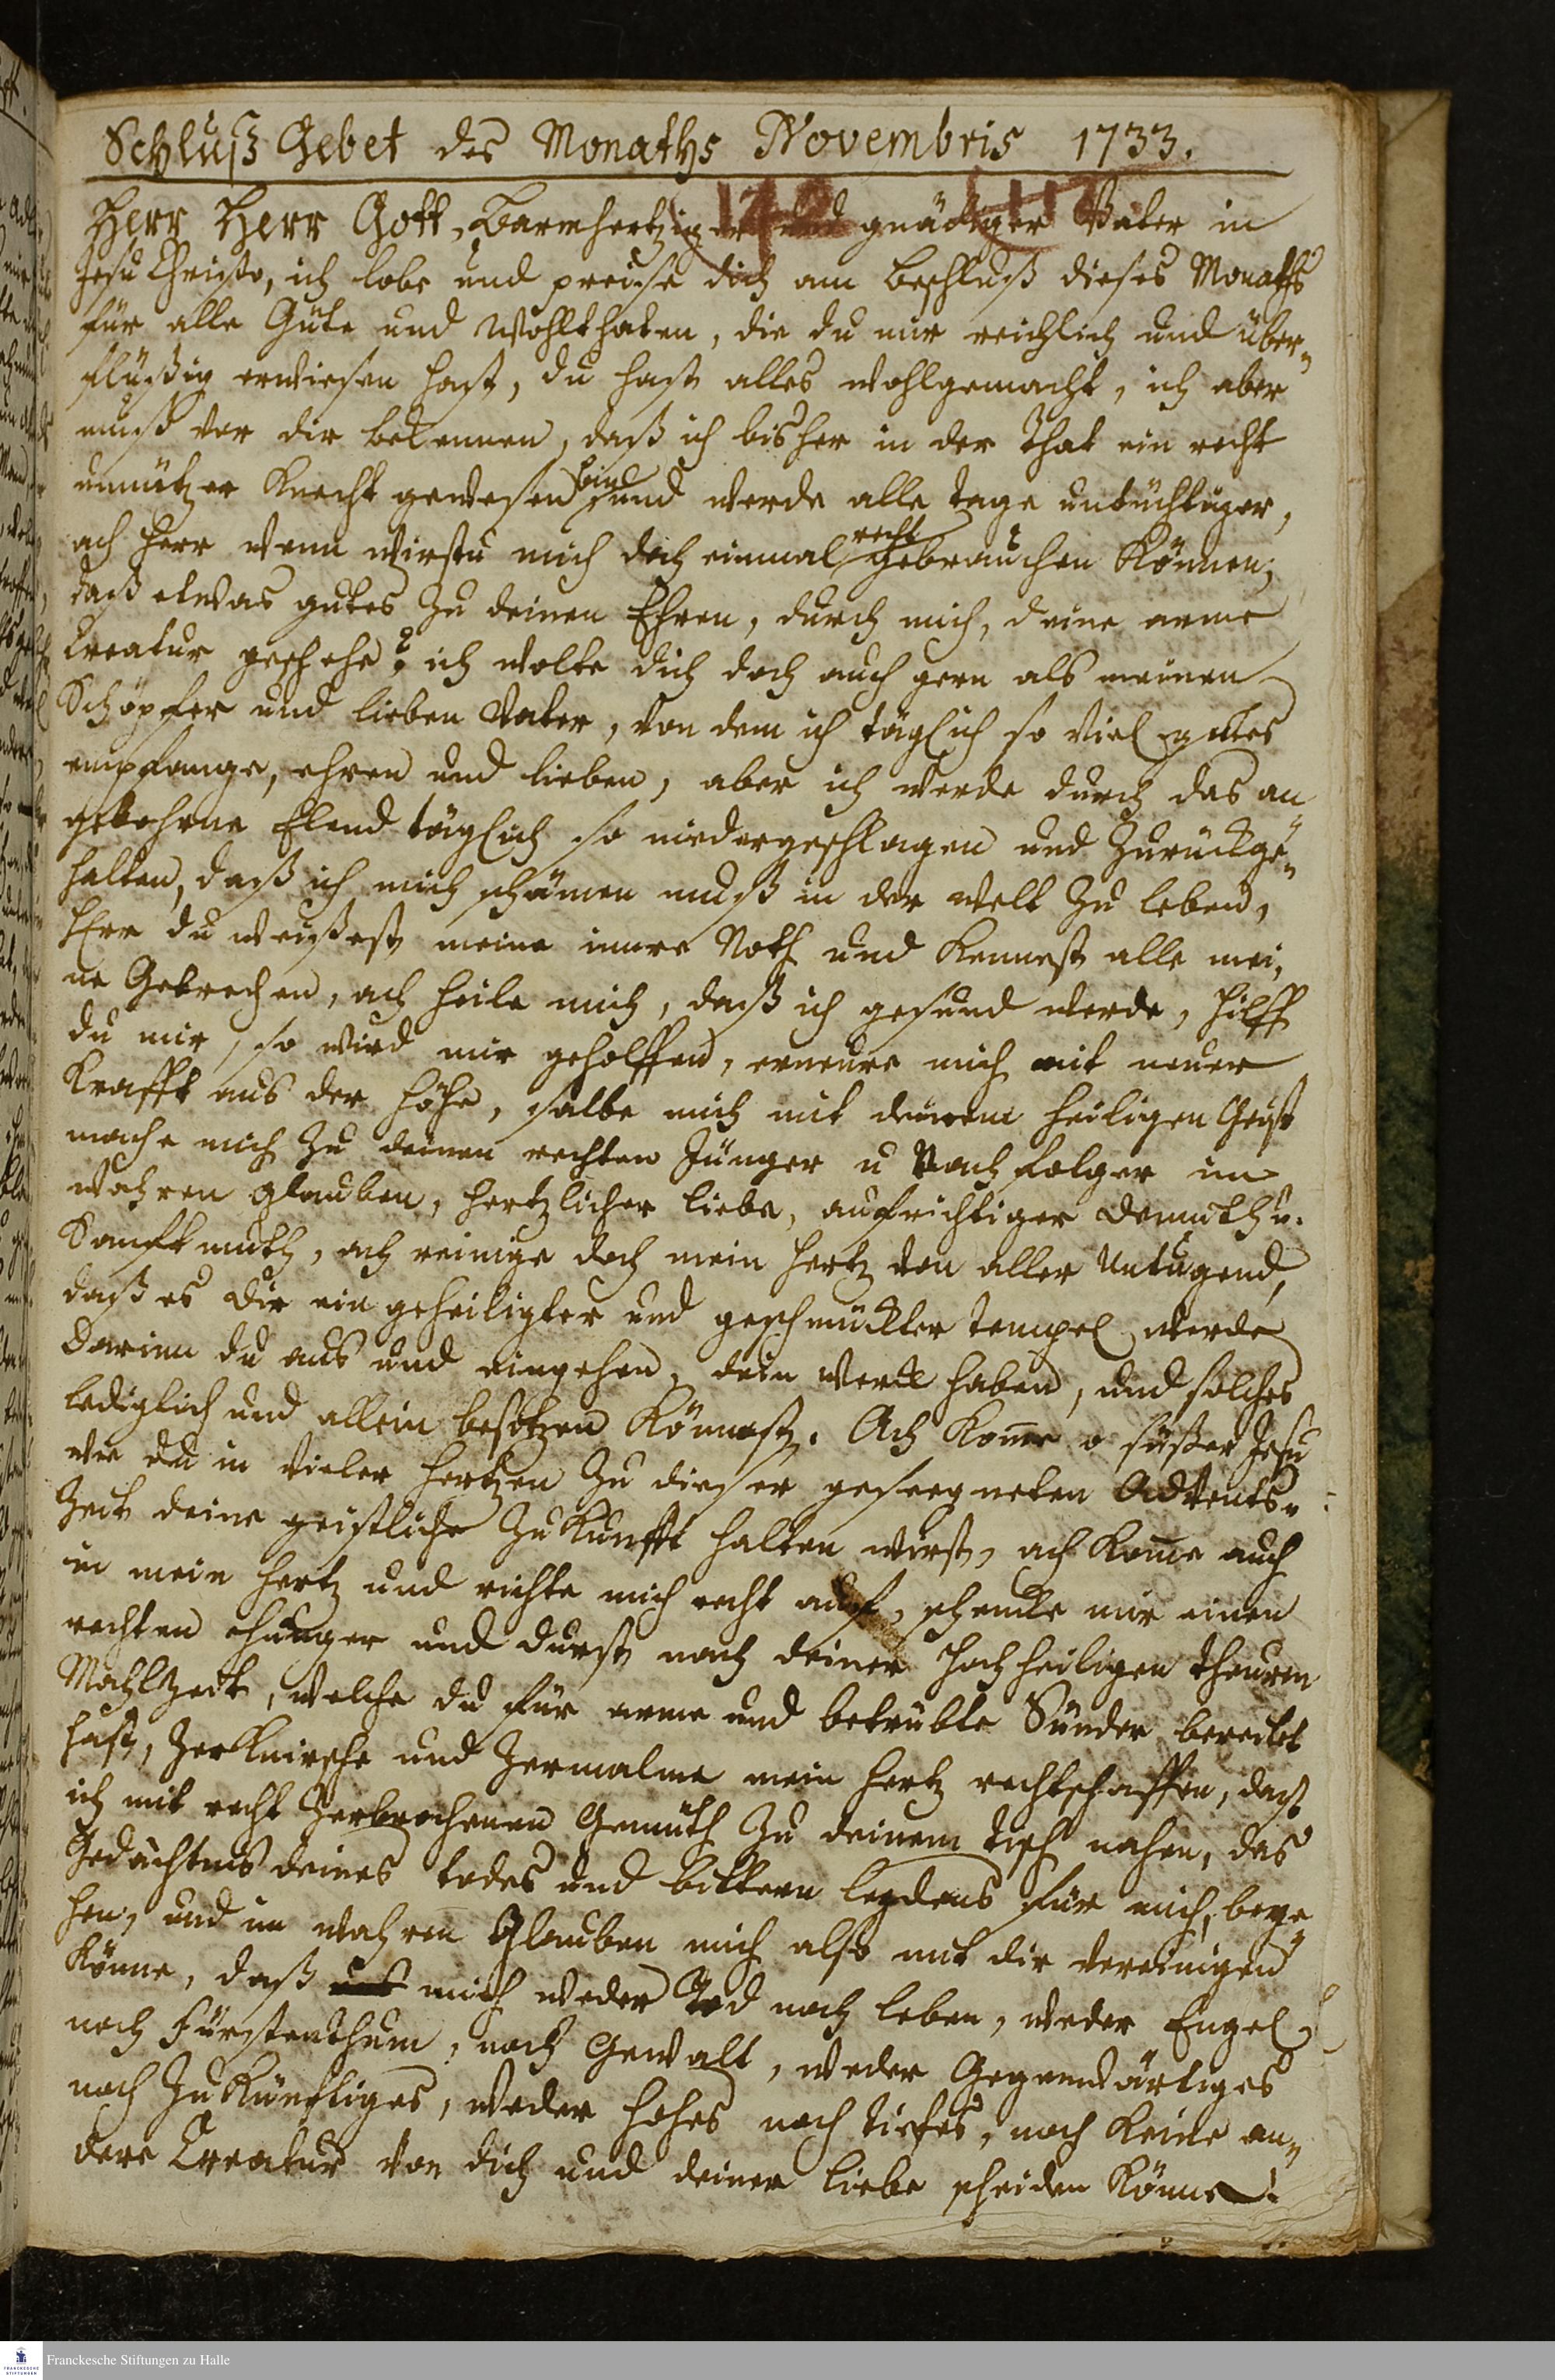 Schluß Gebet des Monaths Novembris 1733.
Herr Herr Gott, Barmhertziger und gnädiger Vater in
Jesu Christo, ich lobe und preise dich am beschluß dieses Monaths
für alle Güte und Wohlthaten, die du mir reichlich und über„
flüßig erwiesen hast, du hast alles wohlgemacht, ich aber
muß vor dir bekennen, daß ich bisher in der That ein recht
unnützer Knecht gewesen bin und werde alle tage untüchtiger,
ach Herr wenn wirstu mich doch einmal recht gebrauchen können,
daß etwas gutes zu deinen Ehren, durch mich, deine arme
Creatur geschehe? ich wolte dich doch auch gern als meinen
Schöpfer und lieben Vater, von dem ich täglich so viel gutes
empfange, ehren und lieben, aber ich werde durch das an
gebohrne Elend täglich so niedergeschlagen und zurückge„
halten, daß ich mich schämen muß in der welt zu leben,
HErr du weißest meine innre Noth und kennest alle mei„
ne Gebrechen, ach heile mich, daß ich gesund werde, hilff
du mir, so wird mir geholffen, erneure mich mit neuer
Krafft aus der Höhe, salbe mich mit deinem heiligen Geist
mache mich zu deinen rechten Jünger u Nachfolger im
wahren glauben, hertzlicher liebe, aufrichtiger demuth u.
Sanftmuth, ach reinige doch mein hertz von aller Untugend,
daß es dir ein geheiligter und geschmückter tempel werde
darinn du aus und eingehen, dein werck haben, und solches
lediglich und allein besitzen könnest. Ach kom̄e o süßer Jesu
wie du in vieler hertzen zu dieser geseegneten Advents„
Zeit deine geistliche Zukunfft halten wirst, ach kom̄e auch
in mein hertz und richte mich recht auf, schencke mir einen
rechten hunger und durst nach deiner hochheiligen theuren
Mahlzeit, welche du für arme und betrübte Sünder bereitet
hast, zerknirsche und zermalme mein hertz rechtschaffen, daß
ich mit recht zerbrochenen Gemüth zu deinem tisch nahen, das
Gedächtnis deines todes und bittern leydens für mich, bege„
hen, und im wahren Glauben mich also mit dir vereinigen
könne, daß mich weder Tod noch leben, weder Engel
noch Fürstenthum, noch Gewalt, weder Gegenwärtiges
noch zukünftiges, weder hohes noch tiefes, noch keine an„
dere Creatur von dich und deiner liebe scheiden könne.
Franckesche Stiftungen zu Halle